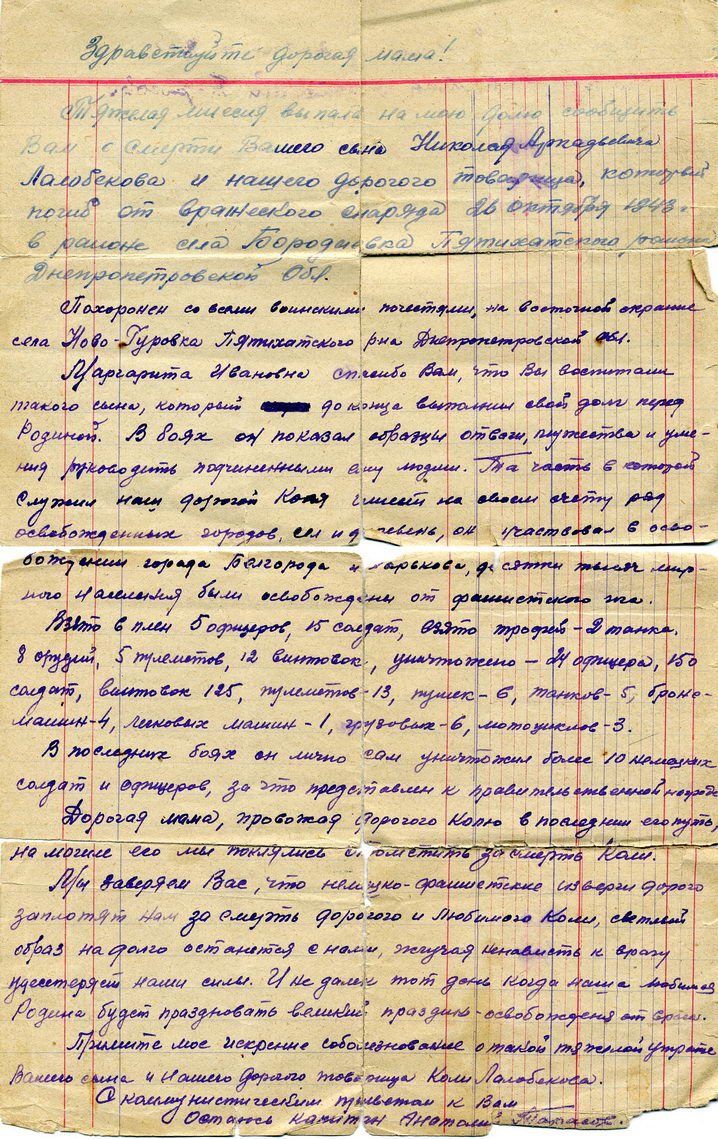 Здравствуйте дорогая мама!
Тяжелая миссия выпала на мою долю сообщить
Вам о смерти Вашего сына Николая Аркадьевича
Лалобекова и нашего дорогого товарища, который
погиб от вражеского снаряда 26 октября 1943 г
в районе села Бородаевка Пятихатского района
Днепропетровской Обл.
Похоронен со всеми воинскими почестями, на восточной окраине
села Ново-Гуровка Пятихатского р-на Днепропетровской обл.
Маргарита Ивановна спасибо Вам, что Вы воспитали
такого сына, который до конца выполнил свой долг перед
Родиной. В боях он показал образцы отваги, мужества и уме-
ния руководить подчиненными ему людми. Та часть в которой
служил наш дорогой Коля имеет на своем счету ряд
освобожденных городов, сел и деревень, он участвовал в осво-
бождении города Белгорода и Харькова, десятки тысяч мир-
ного населения были освобождены от фашистского ига.
Взято в плен 5 офицеров, 15 солдат, взято трофей - 2 танка.
8 орудий, 5 пулеметов, 12 винтовок, уничтожено - 24 офицера, 150
солдат, винтовок 125, пулеметов - 13, пушек - 6, танков - 5, броне-
машин - 4, легковых машин - 1, грузовых - 6, мотоциклов - 3.
В последних боях он лично сам уничтожил более 10 немецких
солдат и офицеров, за что представлен к правительственной награде
Дорогая мама, провожая дорогого Колю в последний его путь,
на могиле его мы поклялись отомстить за смерть Коли.
Мы заверяем Вас, что немецко-фашистские изверги дорого
заплотят нам за смерть дорогого и любимого Коли, светлый
образ на долго останется с нами, жгучая ненависть к врагу
удесетеряет нами силы. И не далек тот день когда наша любимая
Родина будет праздновать великий праздник - освобождения от врага.
Примите мое искренне соболезнование о такой тяжелой утрате
Вашего сына и нашего дорогого товарища Коли Лалобекова.
С коммунистическим приветом к Вам
Остаюсь капитан Анатолий